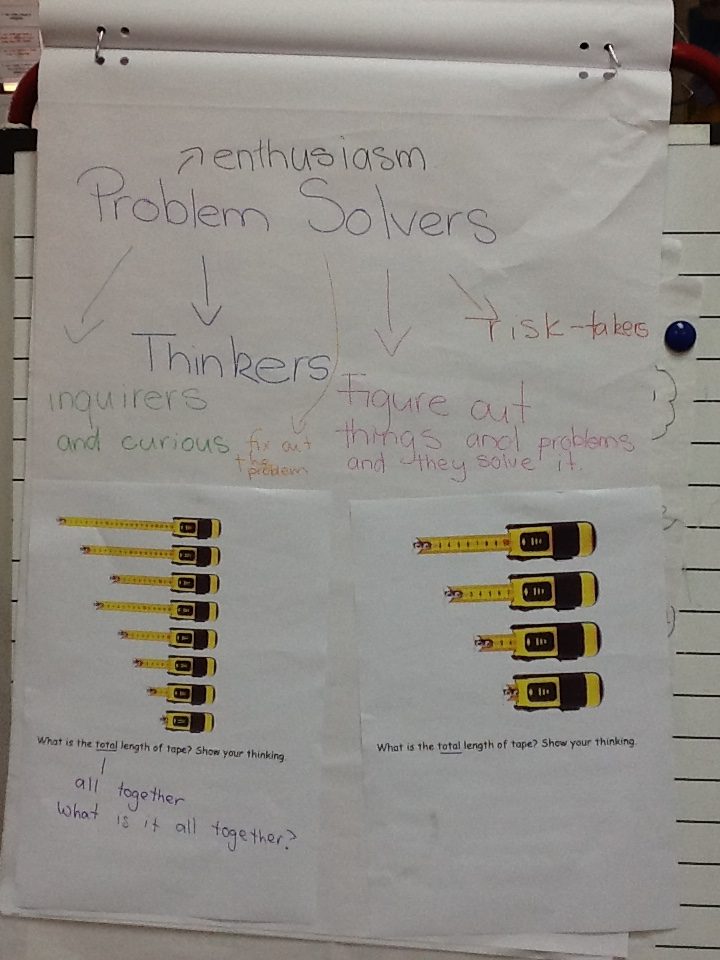 enthusiasm
Problem Solvers
risk-takers
Thinkers
inquirers
and curious
fix out
the
problem
Figure out
things and problems
and they solve it.
What is the total length of tape? Show your thinking.
all together
What is it all together?
What is the total length of tape? Show your thinking.